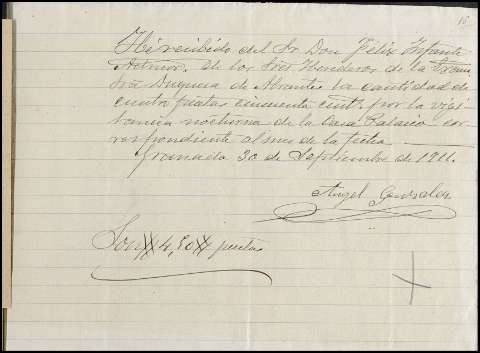 15
He recibido del Sr. Don Félix Infante
Admor. de los Sres Herederos de la Excma
Sra Duquesa de Abrantes la cantidad de
cuatro pesetas cincuenta cints. por la vigi
lancia nocturna de la Casa Palacio cor-
respondiente al mes de la fecha
Granada 30 de Septiembre de 1911.
Angel Gonzalez
Son 4,50 pesetas